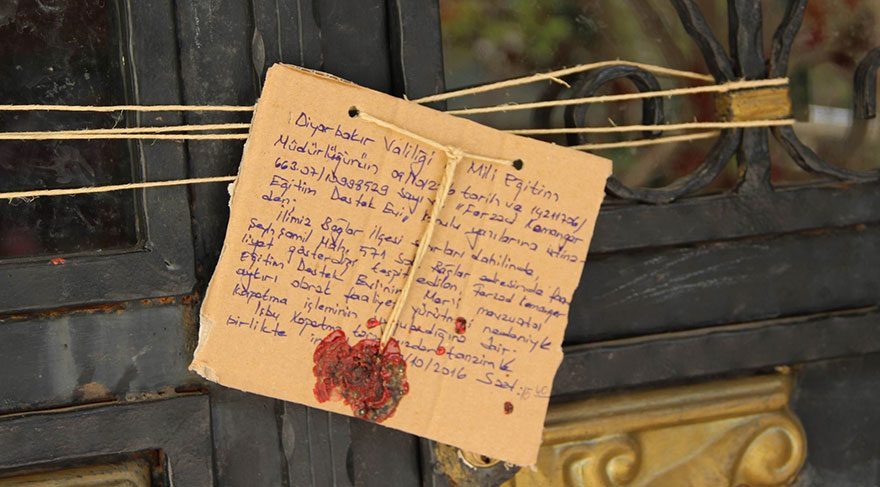 Diyarbakır Valiliği Milli Eğitim
Müdürlüğünün tarih ve 14211706/
663.07/10998529 sayı "Ferzad Kemanger
Eğitim Destek Evi" yazılarına istina-
den;
İlimiz Bağlar ilçesi sınırları dahilinde,
Şeyh Şamil Mahı 571 Sok Bağlar adresinde faa-
liyet gösterdiği tespit edilen, Ferzad Kemanger
Eğitim Destek Evi'nin Merii mevzuatai
aykırı obrat faaliyet yürütmesi nedeniyle
kapatma işleminin dair.
İşbu Kapatma tanzimle
birlikte /10/2016 Saat: